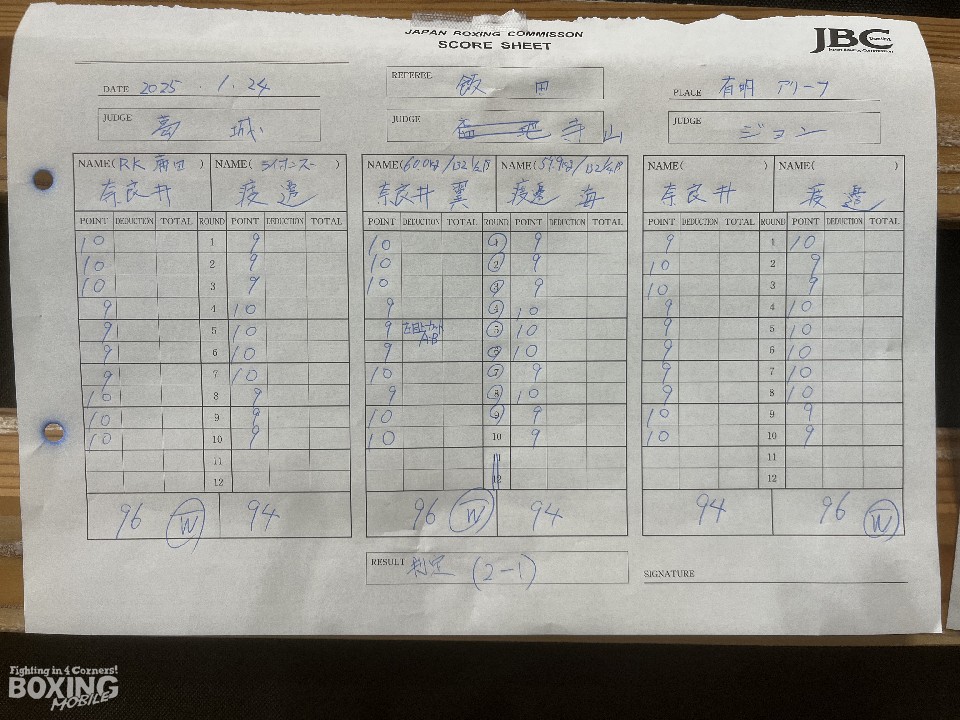 JAPAN BOXING COMMISSON
SCORE SHEET
JBC
DATE 2025 . 1 . 24
REFEREE 飯田
PLACE 有明アリーナ
JUDGE 葛城
JUDGE 寺山
JUDGE ジョン
NAME(RK蒲田) NAME(ライオンズ)
奈良井 渡邉
NAME(60.0kg/132 1/4P NAME(59.9kg/132 1/4P
奈良井 翼 渡邉 海
NAME( ) NAME( )
奈良井 渡邉
POINT DEDUCTION TOTAL ROUND POINT DEDUCTION TOTAL
10 1 9
10 2 9
10 3 9
9 4 10
9 5 10
9 6 10
9 7 10
10 8 9
10 9 9
10 10 9
11
12
96 W 94
POINT DEDUCTION TOTAL ROUND POINT DEDUCTION TOTAL
10 1 9
10 2 9
10 3 9
9 4 10
9 左目上カット 5 10
9 A・B 6 10
10 7 9
9 8 10
10 9 9
10 10 9
11
12
96 W 94
POINT DEDUCTION TOTAL ROUND POINT DEDUCTION TOTAL
9 1 10
10 2 9
10 3 9
9 4 10
9 5 10
9 6 10
9 7 10
9 8 10
10 9 9
10 10 9
11
12
94 96 W
RESULT 判定 (2-1)
SIGNATURE
Fighting in 4 Corners!
BOXING
MOBILE